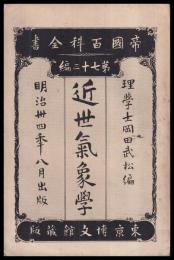 帝國百科全書
第七十二編
理學士岡田武松編
近世氣象學
明治卅四年八月出版
東京博文館藏版